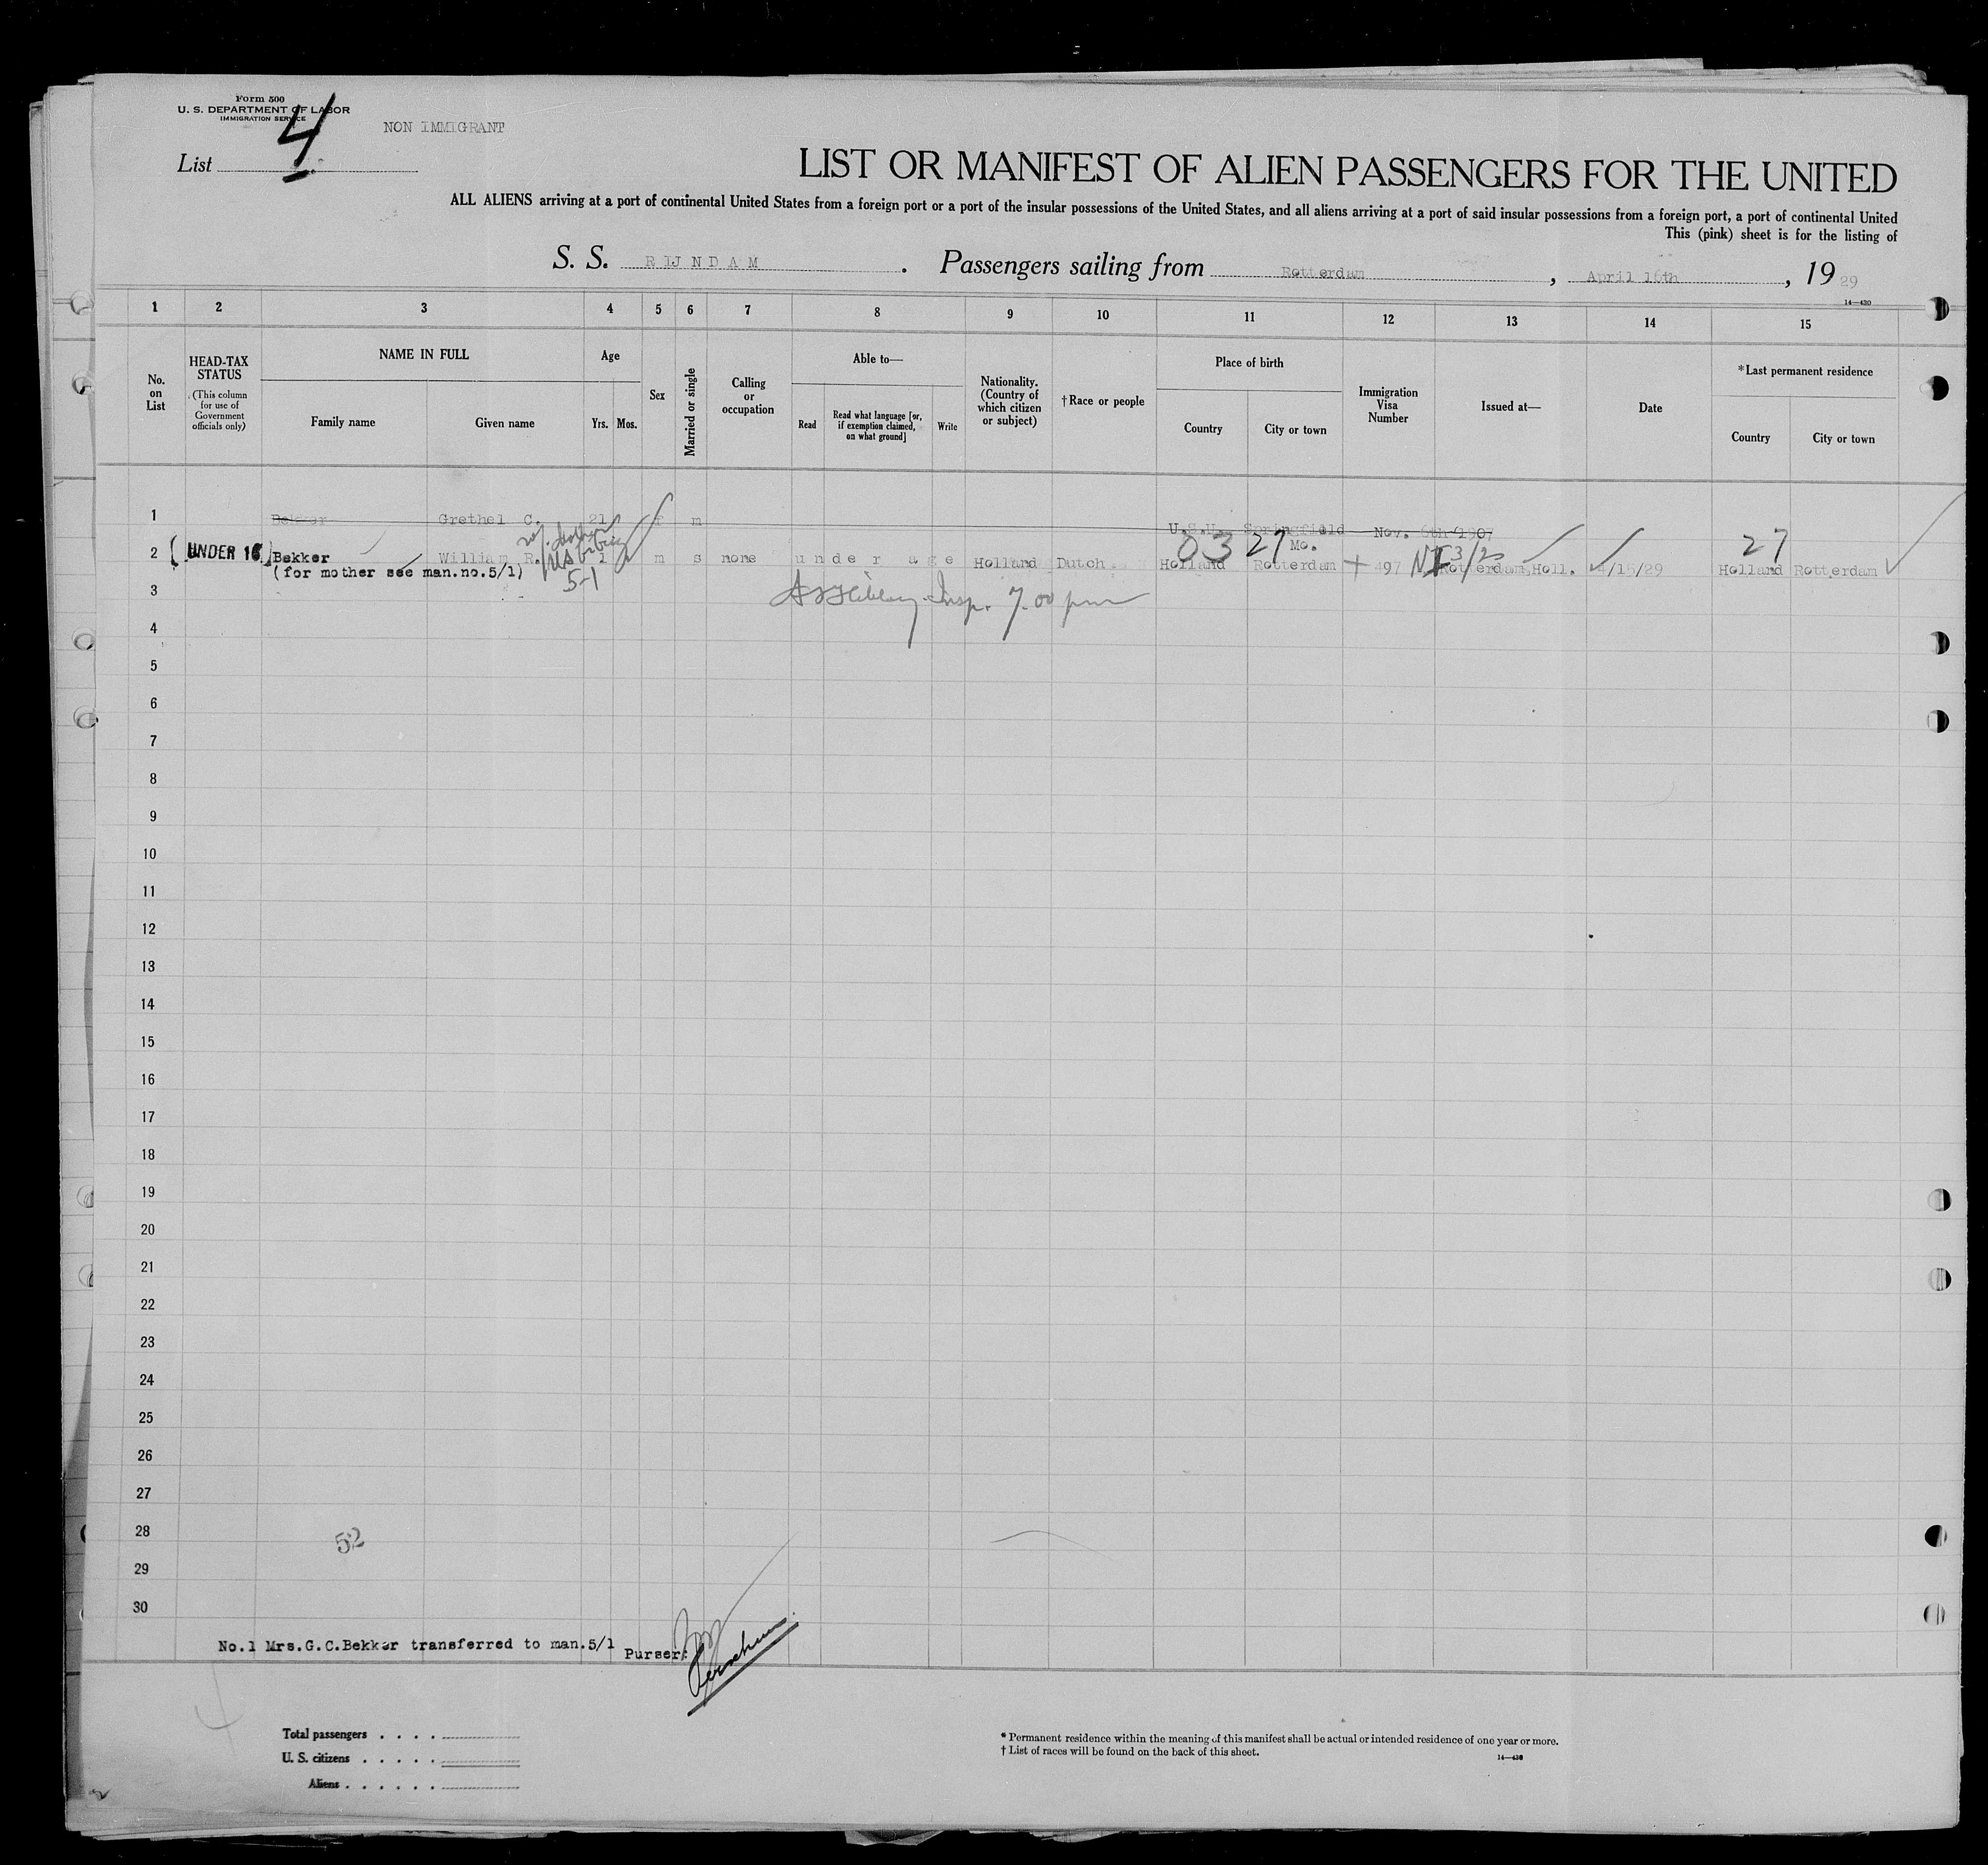 Form 500
U. S. DEPARTMENT OF LABOR
IMMIGRATION SERVICE
4
NON IMMIGRANT
List
LIST OR MANIFEST OF ALIEN PASSENGERS FOR THE UNITED
ALL ALIENS arriving at a port of continental United States from a foreign port or a port of the insular possessions of the United States, and all aliens arriving at a port of said insular possessions from a foreign port, a port of continental United
This (pink) sheet is for the listing of
S. S. RIJNDAM. Passengers sailing from Rotterdam, April 16th, 1929
14—430
1 2 3 4 5 6 7 8 9 10 11 12 13 14 15
No. on List
HEAD-TAX STATUS
(This column for use of Government officials only)
NAME IN FULL
Family name
Given name
Age
Yrs.
Mos.
Sex
Married or single
Calling or occupation
Able to—
Read
Read what language [or, if exemption claimed, on what ground]
Write
Nationality. (Country of which citizen or subject)
†Race or people
Place of birth
Country
City or town
Immigration Visa Number
Issued at—
Date
*Last permanent residence
Country
City or town
1 Bekker Grethel C. 21 f m Springfield Nov. 6th 1907
Mo.
03 27 NI 3/2 27
2 UNDER 16 Bekker William R. 1 m s none under age Holland Dutch Holland Rotterdam 497 Rotterdam, Holl. 4/15/29 Holland Rotterdam
(for mother see man.no.5/1) 5-1
3 Insp. 7.00 pm
4
5
6
7
8
9
10
11
12
13
14
15
16
17
18
19
20
21
22
23
24
25
26
27
28 52
29
30
No.1 Mrs.G.C.Bekker transferred to man.5/1 Purser:
Total passengers . . . .
U. S. citizens . . . . .
Aliens . . . . . .
* Permanent residence within the meaning of this manifest shall be actual or intended residence of one year or more.
† List of races will be found on the back of this sheet.
14—430